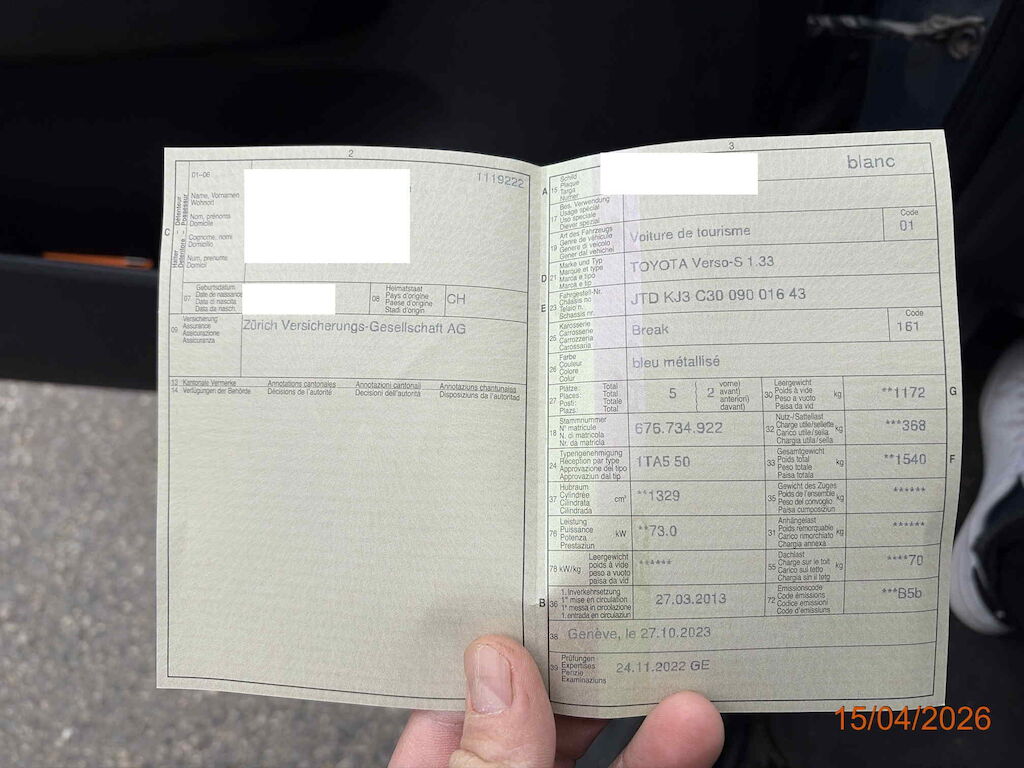 2
1119222
01-06
Name, Vornamen
Wohnort
Nom, prénoms
Domicile
Cognome, nomi
Domicilio
Num, prenums
Domicil
C
Halter – Détenteur
Detentore – Possessur
07
Geburtsdatum
Date de naissance
Data di nascita
Data da nasch.
08
Heimatstaat
Pays d'origine
Paese d'origine
Stadi d'origin
CH
09
Versicherung
Assurance
Assicurazione
Assicuranza
Zürich Versicherungs-Gesellschaft AG
13 Kantonale Vermerke
14 Verfügungen der Behörde
Annotations cantonales
Décisions de l'autorité
Annotazioni cantonali
Decisioni dell'autorità
Annotaziuns chantunalas
Disposiziuns da l'autoritad
3
A
15
Schild
Plaque
Targa
Numer
blanc
17
Bes. Verwendung
Usage spécial
Uso speciale
Diever spezial
19
Art des Fahrzeugs
Genre de véhicule
Genere di veicolo
Gener dal vehichel
Voiture de tourisme
Code
01
D
21
Marke und Typ
Marque et type
Marca e tipo
Marca e tip
TOYOTA Verso-S 1.33
E
23
Fahrgestell-Nr.
Châssis no
Telaio n.
Schassis nr.
JTD KJ3 C30 090 016 43
25
Karosserie
Carrosserie
Carrozzeria
Carossaria
Break
Code
161
26
Farbe
Couleur
Colore
Colur
bleu métallisé
27
Plätze: Total
Places: Total
Posti: Totale
Plazs: Total
5
2
vorne)
avant)
anteriori)
davant)
30
Leergewicht
Poids à vide
Peso a vuoto
Paisa da vid
kg
**1172
G
18
Stammnummer
N° matricule
N. di matricola
Nr. da matricla
676.734.922
32
Nutz-/Sattellast
Charge utile/sellette
Carico utile/sella
Chargia utila/sella
kg
***368
24
Typengenehmigung
Réception par type
Approvazione del tipo
Approvaziun dal tip
1TA5 50
33
Gesamtgewicht
Poids total
Peso totale
Paisa totala
kg
**1540
F
37
Hubraum
Cylindrée
Cilindrata
Cilindrada
cm³
**1329
35
Gewicht des Zuges
Poids de l'ensemble
Peso del convoglio
Paisa cumposiziun
kg
******
76
Leistung
Puissance
Potenza
Prestaziun
kW
**73.0
31
Anhängelast
Poids remorquable
Carico rimorchiato
Chargia annexa
kg
******
78 kW/kg
Leergewicht
poids à vide
peso a vuoto
paisa da vid
******
55
Dachlast
Charge sur le toit
Carico sul tetto
Chargia sin il tetg
kg
****70
B
36
1. Inverkehrsetzung
1re mise en circulation
1a messa in circolazione
1. entrada en circulaziun
27.03.2013
72
Emissionscode
Code émissions
Codice emissioni
Code d'emissiuns
***B5b
38
Genève, le 27.10.2023
39
Prüfungen
Expertises
Perizie
Examinaziuns
24.11.2022 GE
15/04/2026